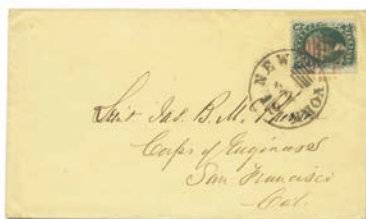 NEW YORK
Lieut Jas. B. M.
Corps of Engineers
San Francisco
Cal.